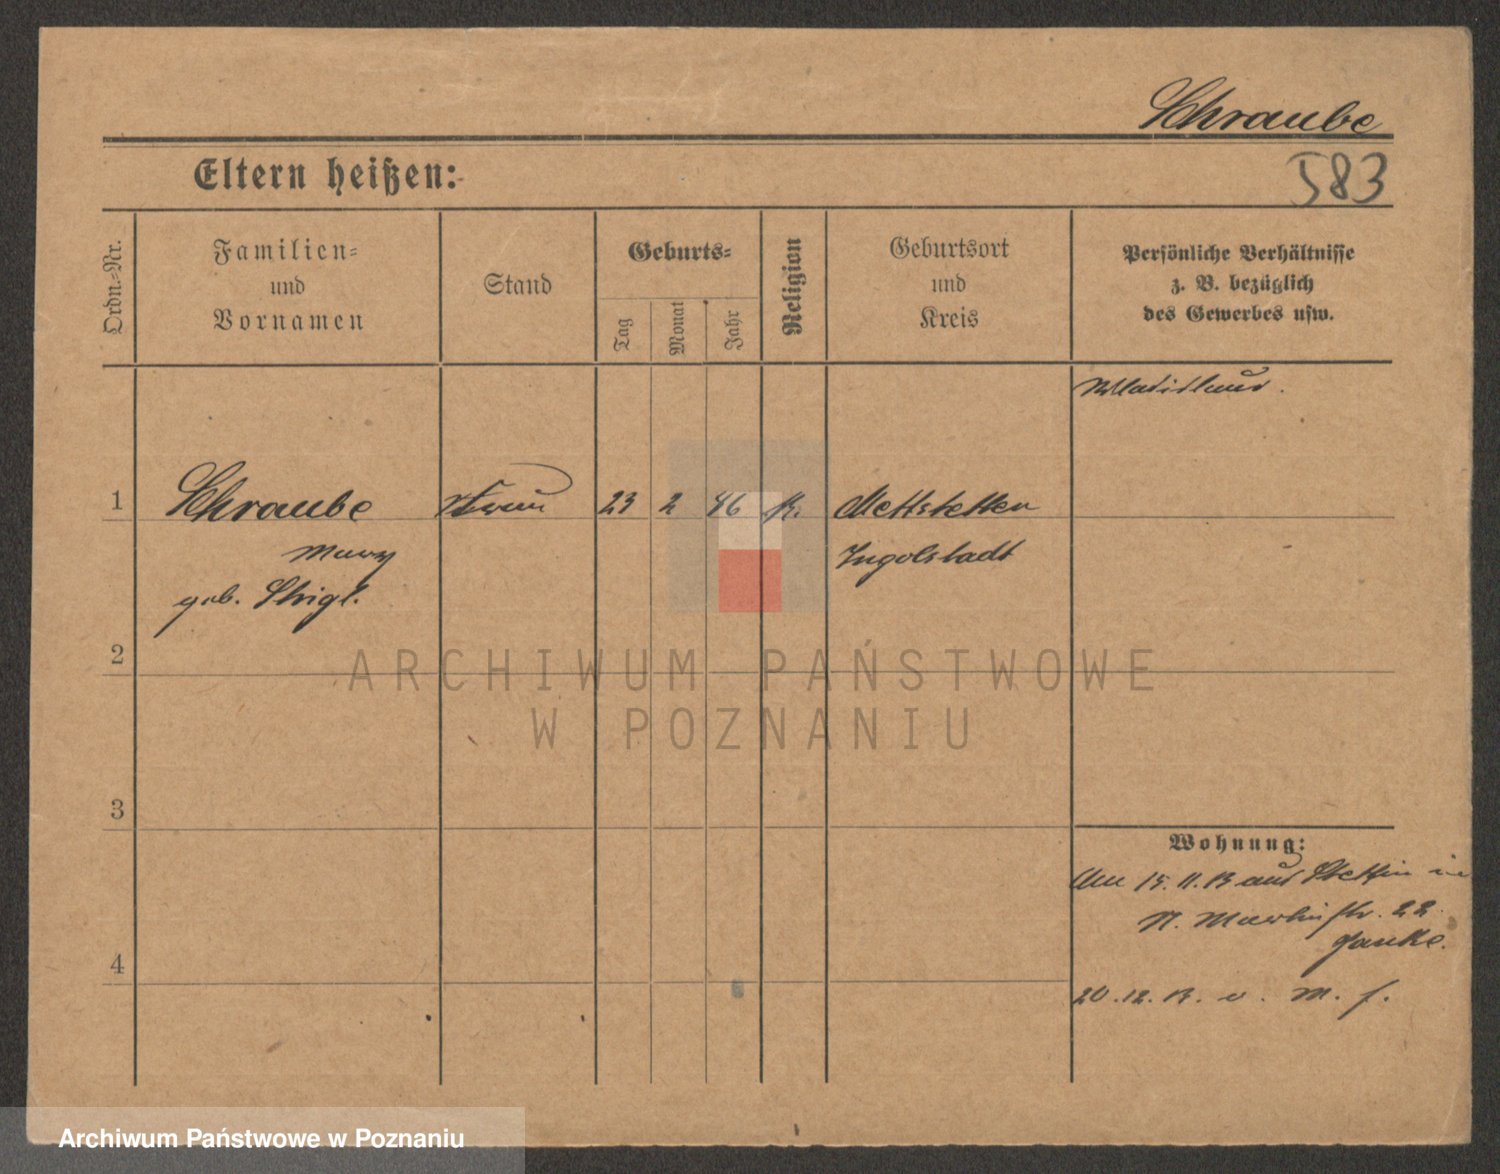 Schraube
Eltern heißen:
583
Ordn.=Nr.
Familien=
und
Vornamen
Stand
Geburts=
Tag
Monat
Jahr
Religion
Geburtsort
und
Kreis
Persönliche Verhältnisse
z. B. bezüglich
des Gewerbes usw.
1
Schraube
23
2
46
K.
Mettstetten
Ingolstadt
Mary
geb. Strigl.
2
ARCHIWUM PAŃSTWOWE
W POZNANIU
3
Wohnung:
Am 15.11.13 aus Stettin in
N. Martinstr. 22
4
20.12.13. v. M. f.
Archiwum Państwowe w Poznaniu